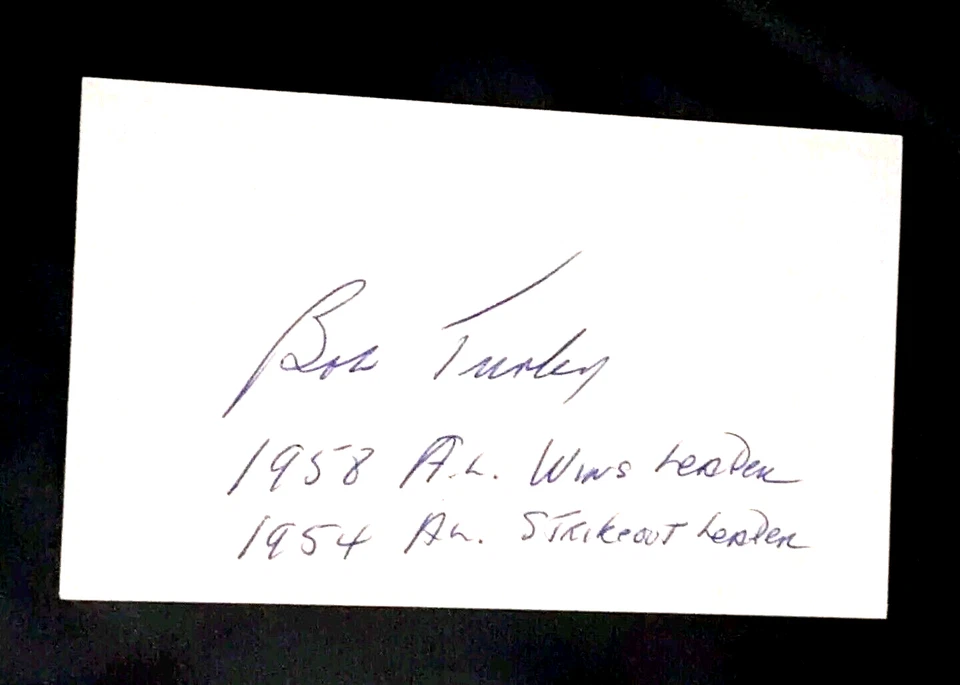 Bob Turley
1958 A.L. Wins Leader
1954 AL. Strikeout Leader